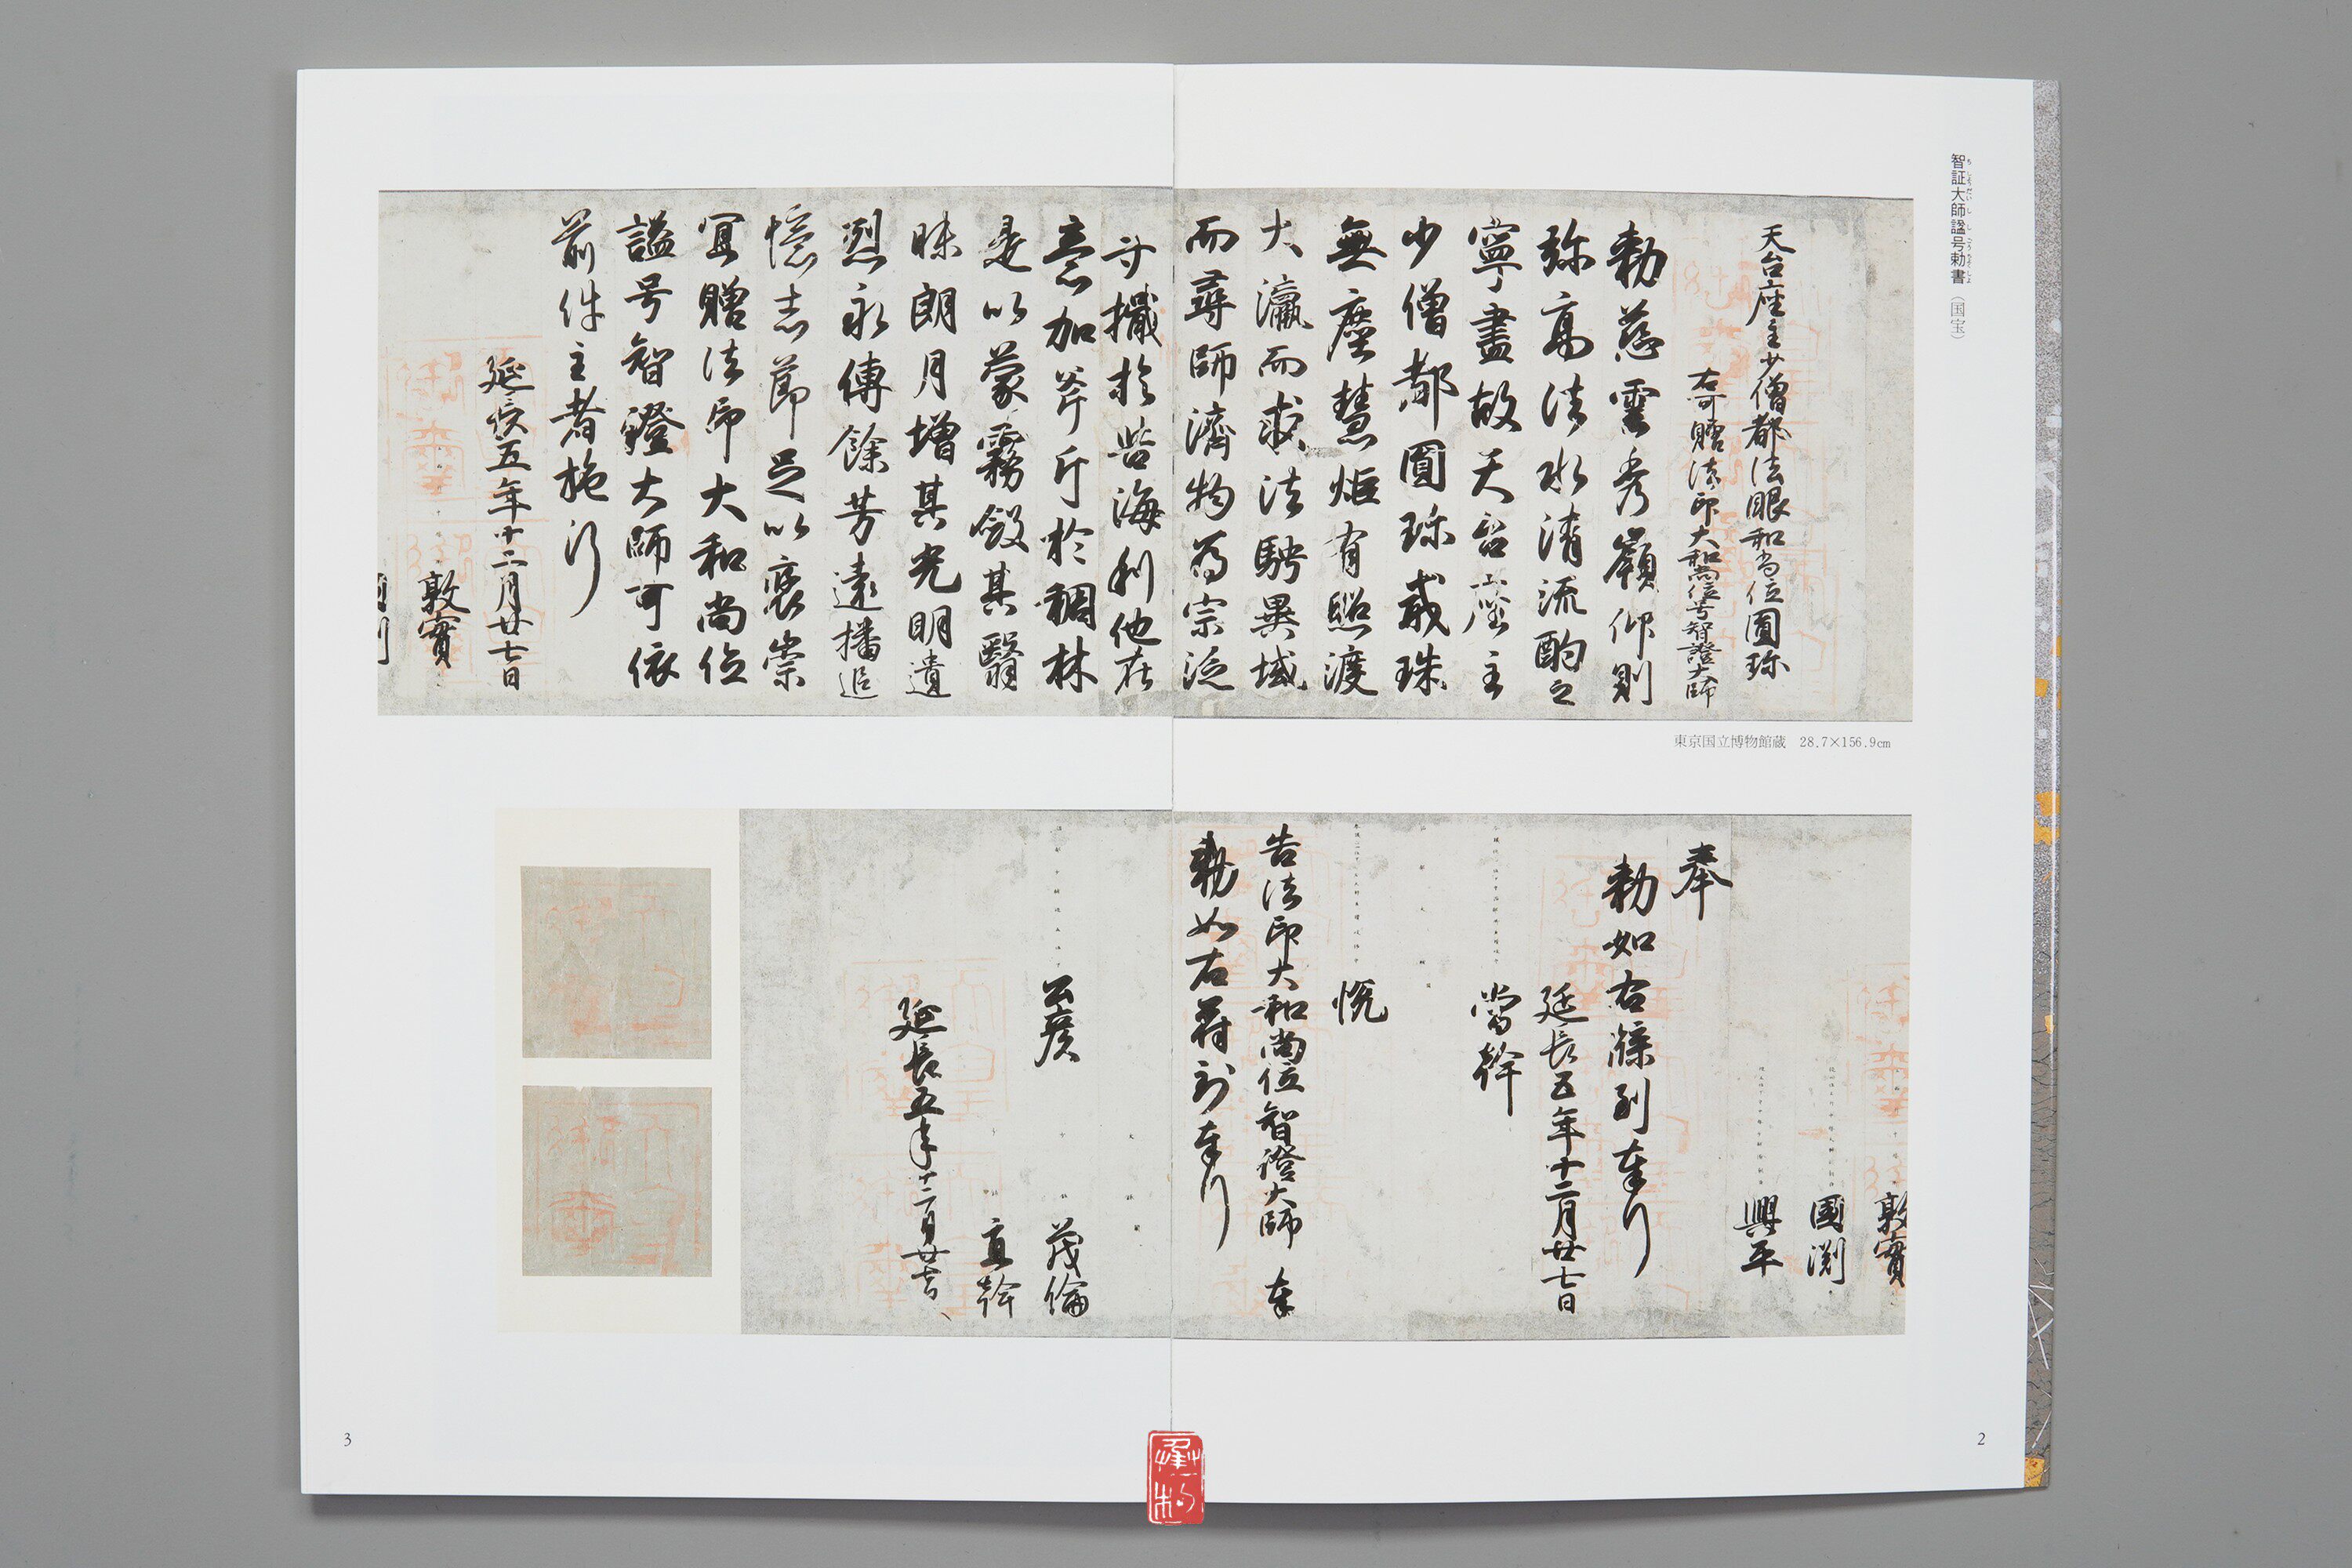 智証大師諡号勅書（国宝）
天台座主少僧都法眼和尚位圓珎
右可贈法印大和尚位号智證大師
勅慈雲秀嶺仰則
弥高法水清流酌之
寧盡故天台座主
少僧都圓珎戒珠
無塵慧炬有照渡
大瀛而求法騁異域
而尋師濟物為宗泛
於苦海利他在
意加斧斤於稠林
是以蒙霧斂其翳
昧朗月增其光明遺
烈永傳餘芳遠播追
憶志節足以褒崇
冝贈法印大和尚位
諡号智證大師可依
前件主者施行
延長五年十二月廿七日
敦實
東京国立博物館蔵 28.7×156.9cm
敦實
國渕
興平
奉
勅如右牒到奉行
延長五年十二月廿七日
當幹
悦
告法印大和尚位智證大師 奉
勅如右符到奉行
公彦 茂倫
直幹
延長五年十二月廿七日
3
2